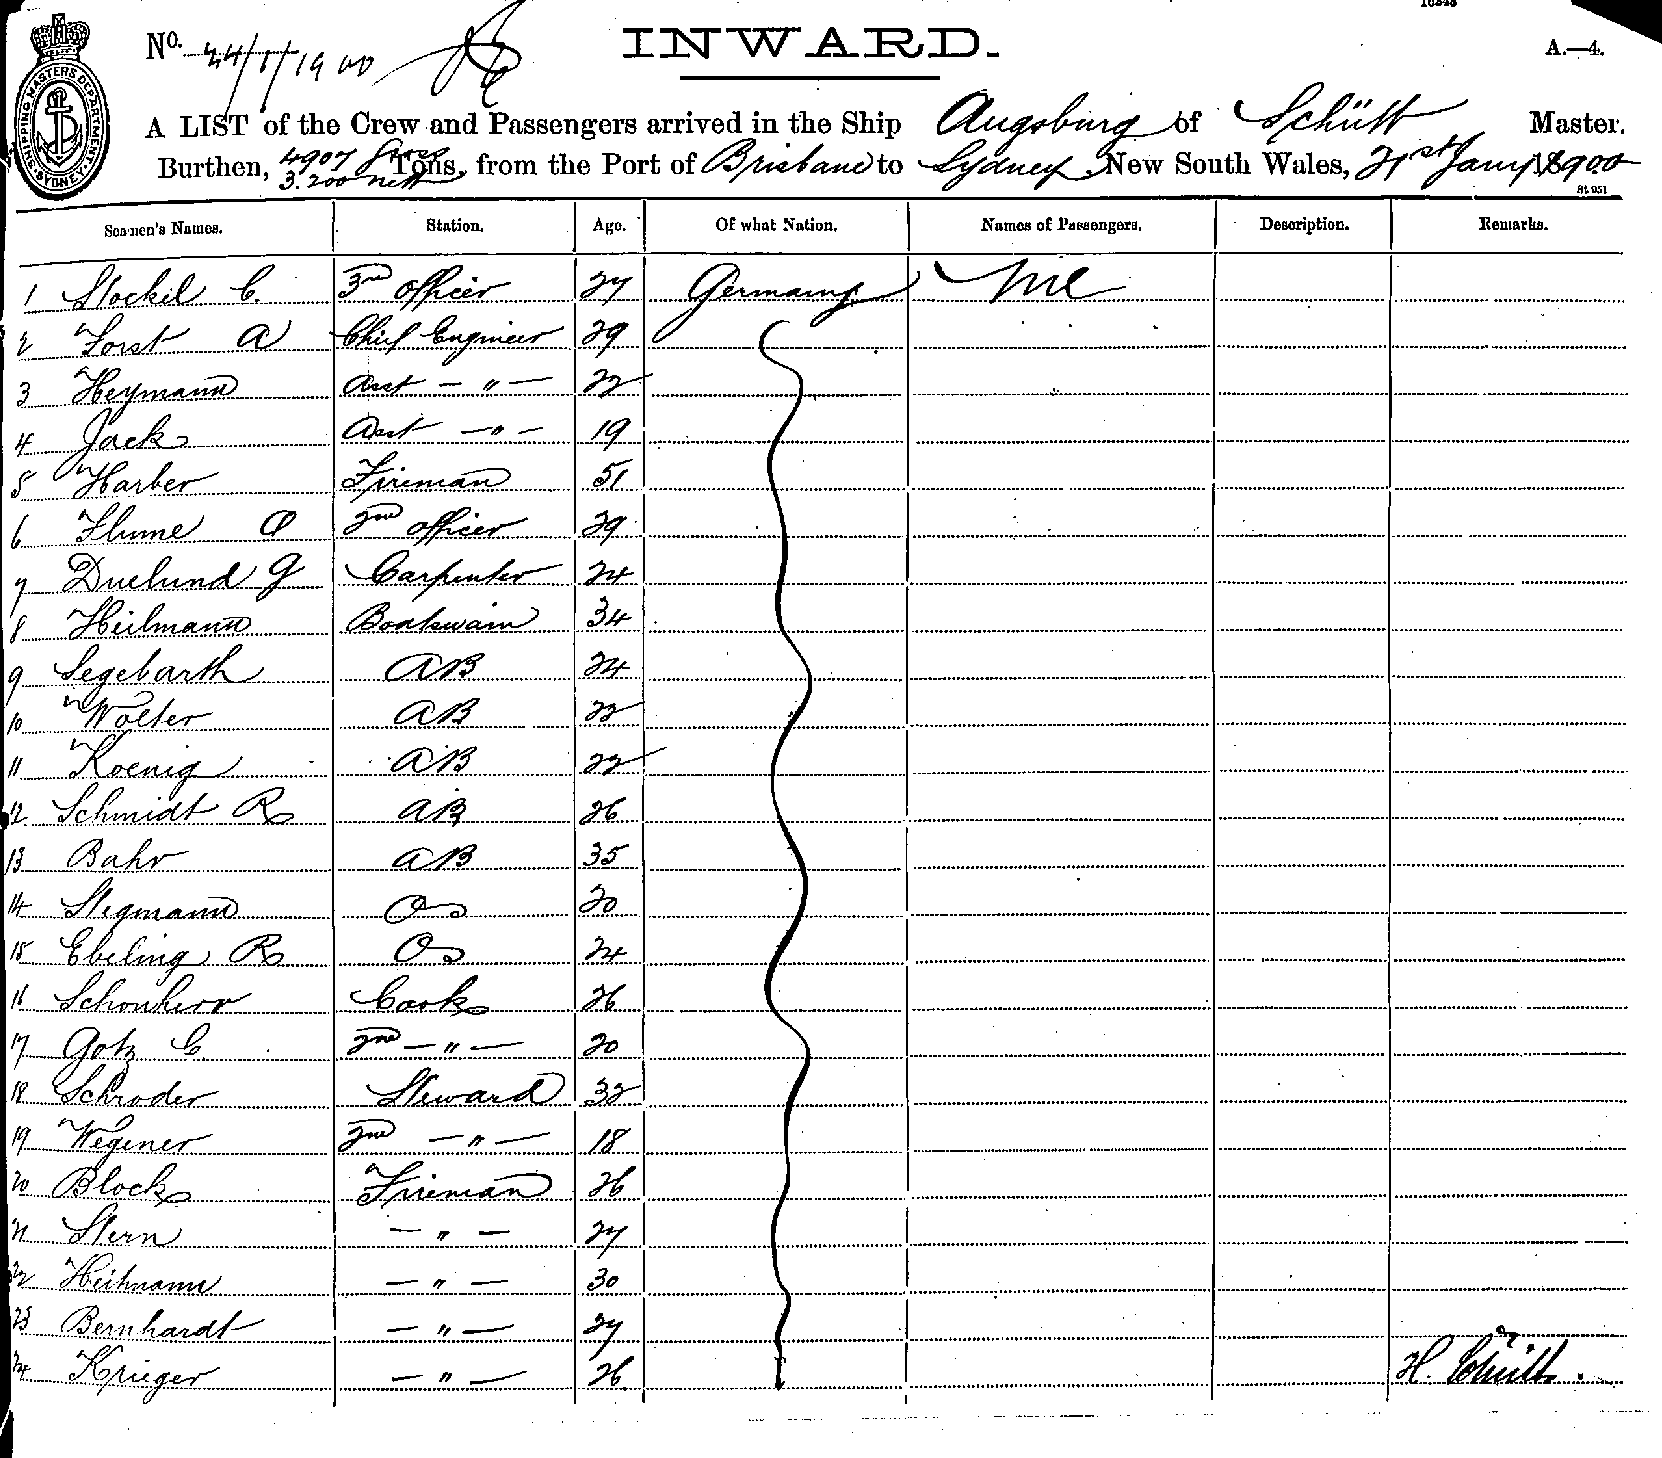 16248
No. 24/1/1900
INWARD.
A.—4.
SHIPPING MASTERS DEPARTMENT. SYDNEY.
A LIST of the Crew and Passengers arrived in the Ship Augsburg of Schütt Master.
Burthen, 4907 Gross 3.200 nett Tons, from the Port of Brisbane to Sydney, New South Wales, 21st Jany 1900
Seamen's Names. Station. Age. Of what Nation. Names of Passengers. Description. Remarks.
1 Stockil C. 3rd officer 27 Germany Nil
2 Forst A Chief Engineer 29
3 Heymann Asst — " — 22
4 Jack Asst — " — 19
5 Harber Fireman 51
6 Flume O 2nd officer 29
7 Duelund G Carpenter 24
8 Heilmann Boatswain 34
9 Segebarth AB 24
10 Wolter AB 22
11 Koenig AB 22
12 Schmidt R AB 26
13 Bahr AB 35
14 Stegmann Os 20
15 Ebeling R Os 24
16 Schonherr Cook 26
17 Gotz C 2nd — " — 20
18 Schroder Steward 32
19 Wegener 2nd — " — 18
20 Block Fireman 26
21 Stern — " — 27
22 Heitmann — " — 30
23 Bernhardt — " — 27
24 Krieger — " — 26
H. Schütt.